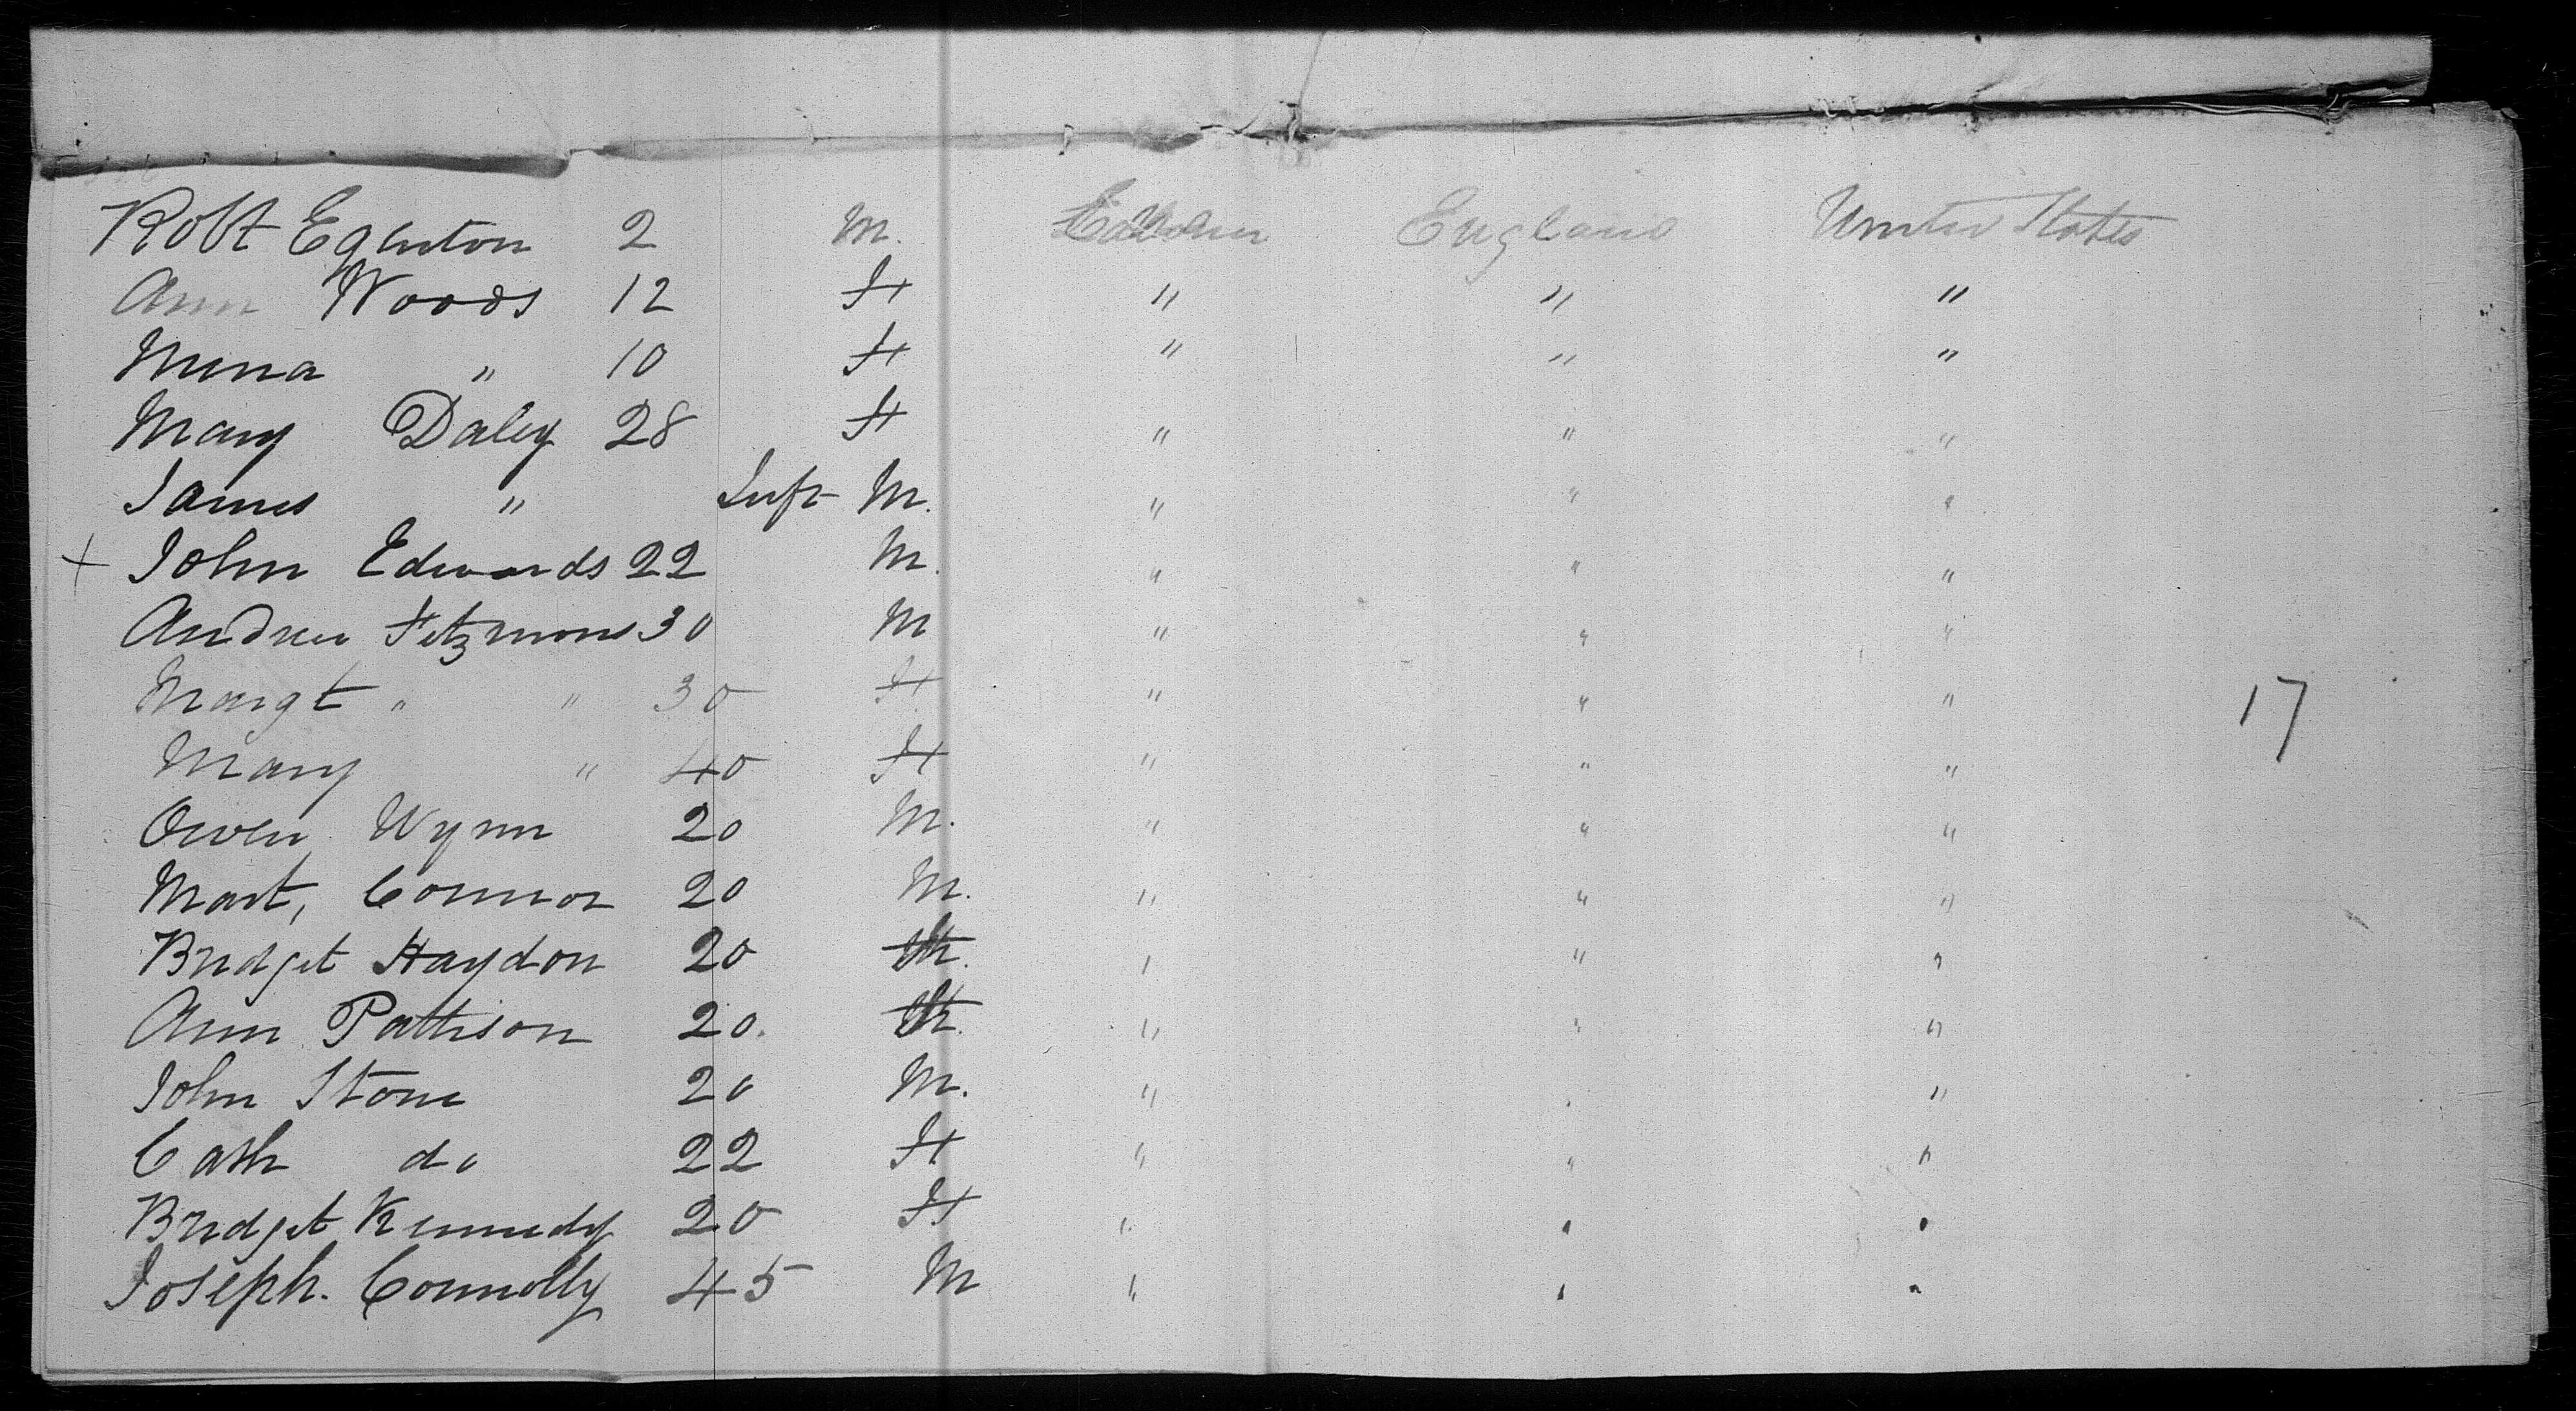 Robt Egerton 2 M. England United States
Ann Woods 12 F " " "
Mina " 10 F " " "
Mary Daley 28 F " " "
James " Inft M. " " "
+ John Edwards 22 M. " " "
Andrew Fitzmons 30 M " " "
Margt " " 30 F " " " 17
Mary " 40 F " " "
Owen Wynn 20 M. " " "
Mart, Connor 20 M. " " "
Bridget Haydon 20 F " " "
Ann Pattison 20. F " " "
John Stone 20 M. " " "
Cath do 22 F " " "
Bridget Kennedy 20 F " " "
Joseph. Connolly 45 M " " "